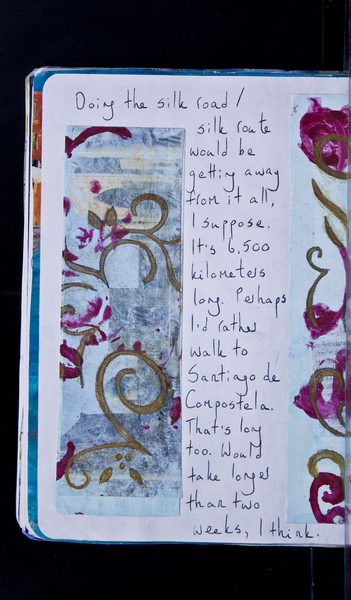 Doing the silk road /
silk route
would be
getting away
from it all,
I suppose.
It's 6,500
kilometers
long. Perhaps
I'd rather
walk to
Santiago de
Compostela.
That's long
too. Would
take longer
than two
weeks, I think.